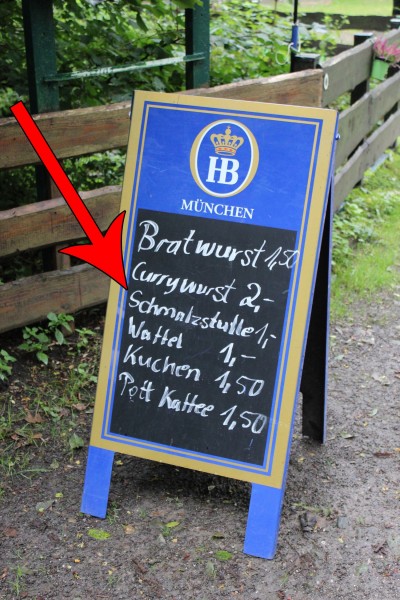 HB
MÜNCHEN
Bratwurst 1,50
Currywurst 2,-
Schmalzstulle 1,-
Waffel 1,-
Kuchen 1,50
Pott Kaffee 1,50